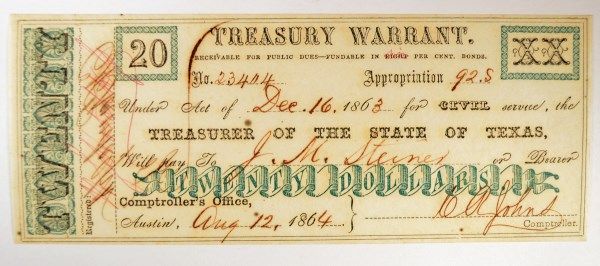 TWENTY
20
TREASURY WARRANT.
XX
RECEIVABLE FOR PUBLIC DUES—FUNDABLE IN EIGHT PER CENT. BONDS.
No. 23404 Appropriation 92.8
Under Act of Dec. 16. 1863 for CIVIL service, the
TREASURER OF THE STATE OF TEXAS,
Will pay To J. M. Steiner or Bearer
TWENTY DOLLARS
Registered
Comptroller's Office,
Austin, Aug 12, 1864
Comptroller.